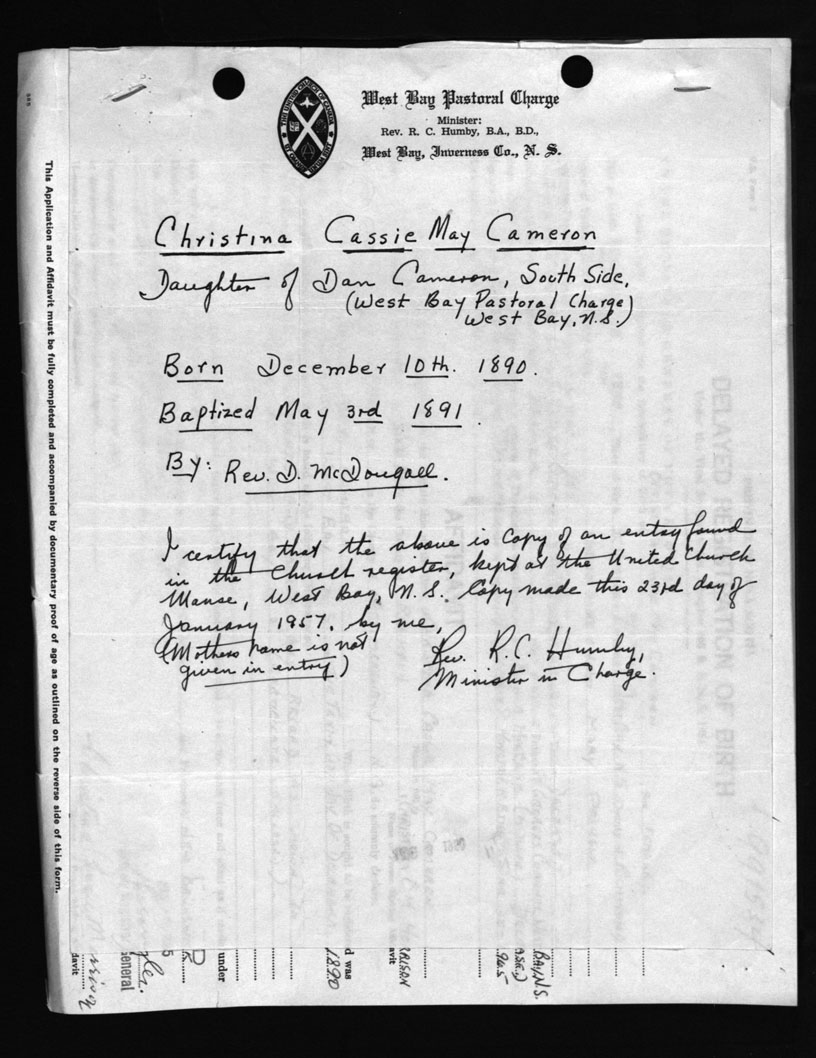 West Bay Pastoral Charge
Minister:
Rev. R. C. Humby, B.A., B.D.,
West Bay, Inverness Co., N. S.
THE UNITED CHURCH OF CANADA
Christina Cassie May Cameron
Daughter of Dan Cameron, South Side,
(West Bay Pastoral Charge)
West Bay, N.S.)
Born December 10th. 1890.
Baptized May 3rd 1891.
By: Rev. D. McDougall.
I certify that the above is Copy of an entry found
in the Church register, kept at the United Church
Manse, West Bay, N.S. Copy made this 23rd day of
January 1957. by me,
(Mothers name is not
given in entry)
Rev. R.C. Humby,
Minister in Charge.
This Application and Affidavit must be fully completed and accompanied by documentary proof of age as outlined on the reverse side of this form.
DELAYED REGISTRATION OF BIRTH
BAY N.S.
d was
1890
under
General
davit